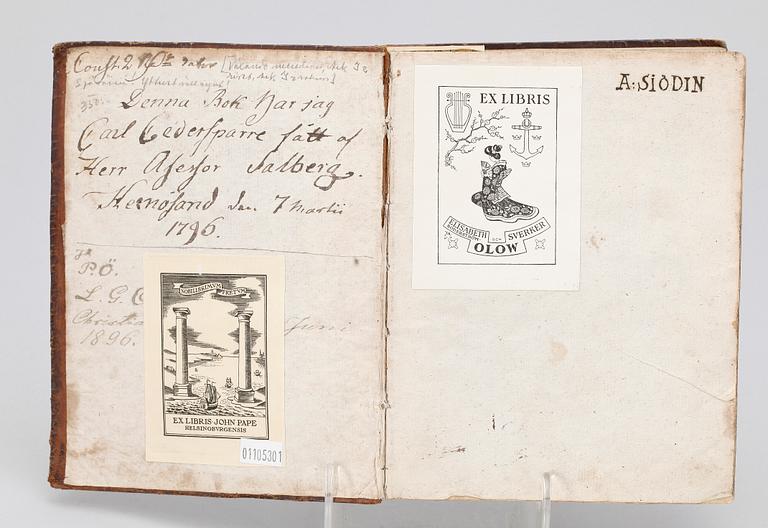 Const. 2
Denna Bok har jag
Carl Cedersparre fått af
Herr Asessor Salberg.
Hernösand den 7 Martii
1796.
P.Ö.
L. G. C
Christia Juni
1896.
NOBILE PRIMVM FRETVM
EX LIBRIS JOHN PAPE
HELSINOBVRGENSIS
01105301
EX LIBRIS
ELISABETH
OCH
SVERKER
OLOW
A: SIÖDIN